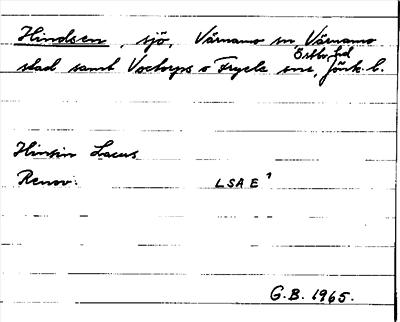 Hindsen, sjö, Värnamo sn Värnamo
Östbo hd
stad samt Voxtorps o Tryele snr, Jönk. l.
Hinsin Lacus
Renov:
LSA E¹
G.B. 1965.